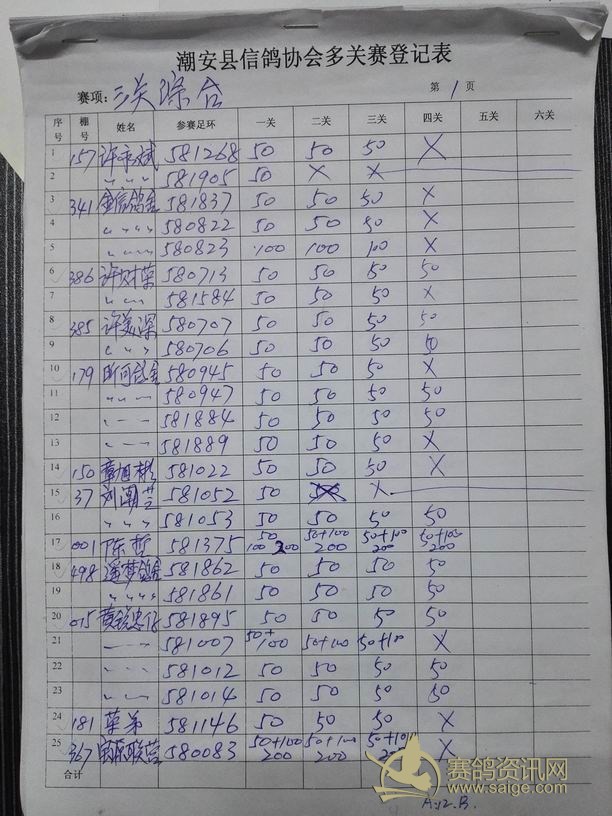 潮安县信鸽协会多关赛登记表
赛项: 三关综合 第 1 页
序号 棚号 姓名 参赛足环 一关 二关 三关 四关 五关 六关
1 157 许 斌 581268 50 50 50 X
2 〃 〃 〃 581905 50 X X
3 341 金信鸽舍 581837 50 50 50 X
4 〃 〃 〃 580822 50 50 50 X
5 〃 〃 580823 100 100 100 X
6 386 许 荣 580713 50 50 50 50
7 〃 〃 581584 50 50 50 X
8 385 许美深 580707 50 50 50 50
9 〃 〃 〃 580706 50 50 50 50
10 179 580945 50 50 50 X
11 〃 〃 580947 50 50 50 50
12 〃 〃 581884 50 50 50 50
13 〃 〃 581889 50 50 50 X
14 150 章旭彬 581022 50 50 50 X
15 37 刘潮芝 581052 50 X
16 〃 〃 〃 581053 50 50 50 50
17 001 陈哲 581375 50 100 200 50+100 200 50+100 200 50+100 200
18 498 遥梦鸽舍 581862 50 50 50 50
19 〃 〃 〃 〃 581861 50 50 50 50
20 015 黄 忠仔 581895 50 50 50 50
21 〃 〃 581007 50+100 50+100 50+100 X
22 〃 〃 581012 50 50 50 50
23 〃 〃 581014 50 50 50 50
24 181 草弟 581146 50 50 50 X
25 367 联营 580083 50+100 200 50+100 200 50+100 200 X
合计
赛鸽资讯网
www.saige.com